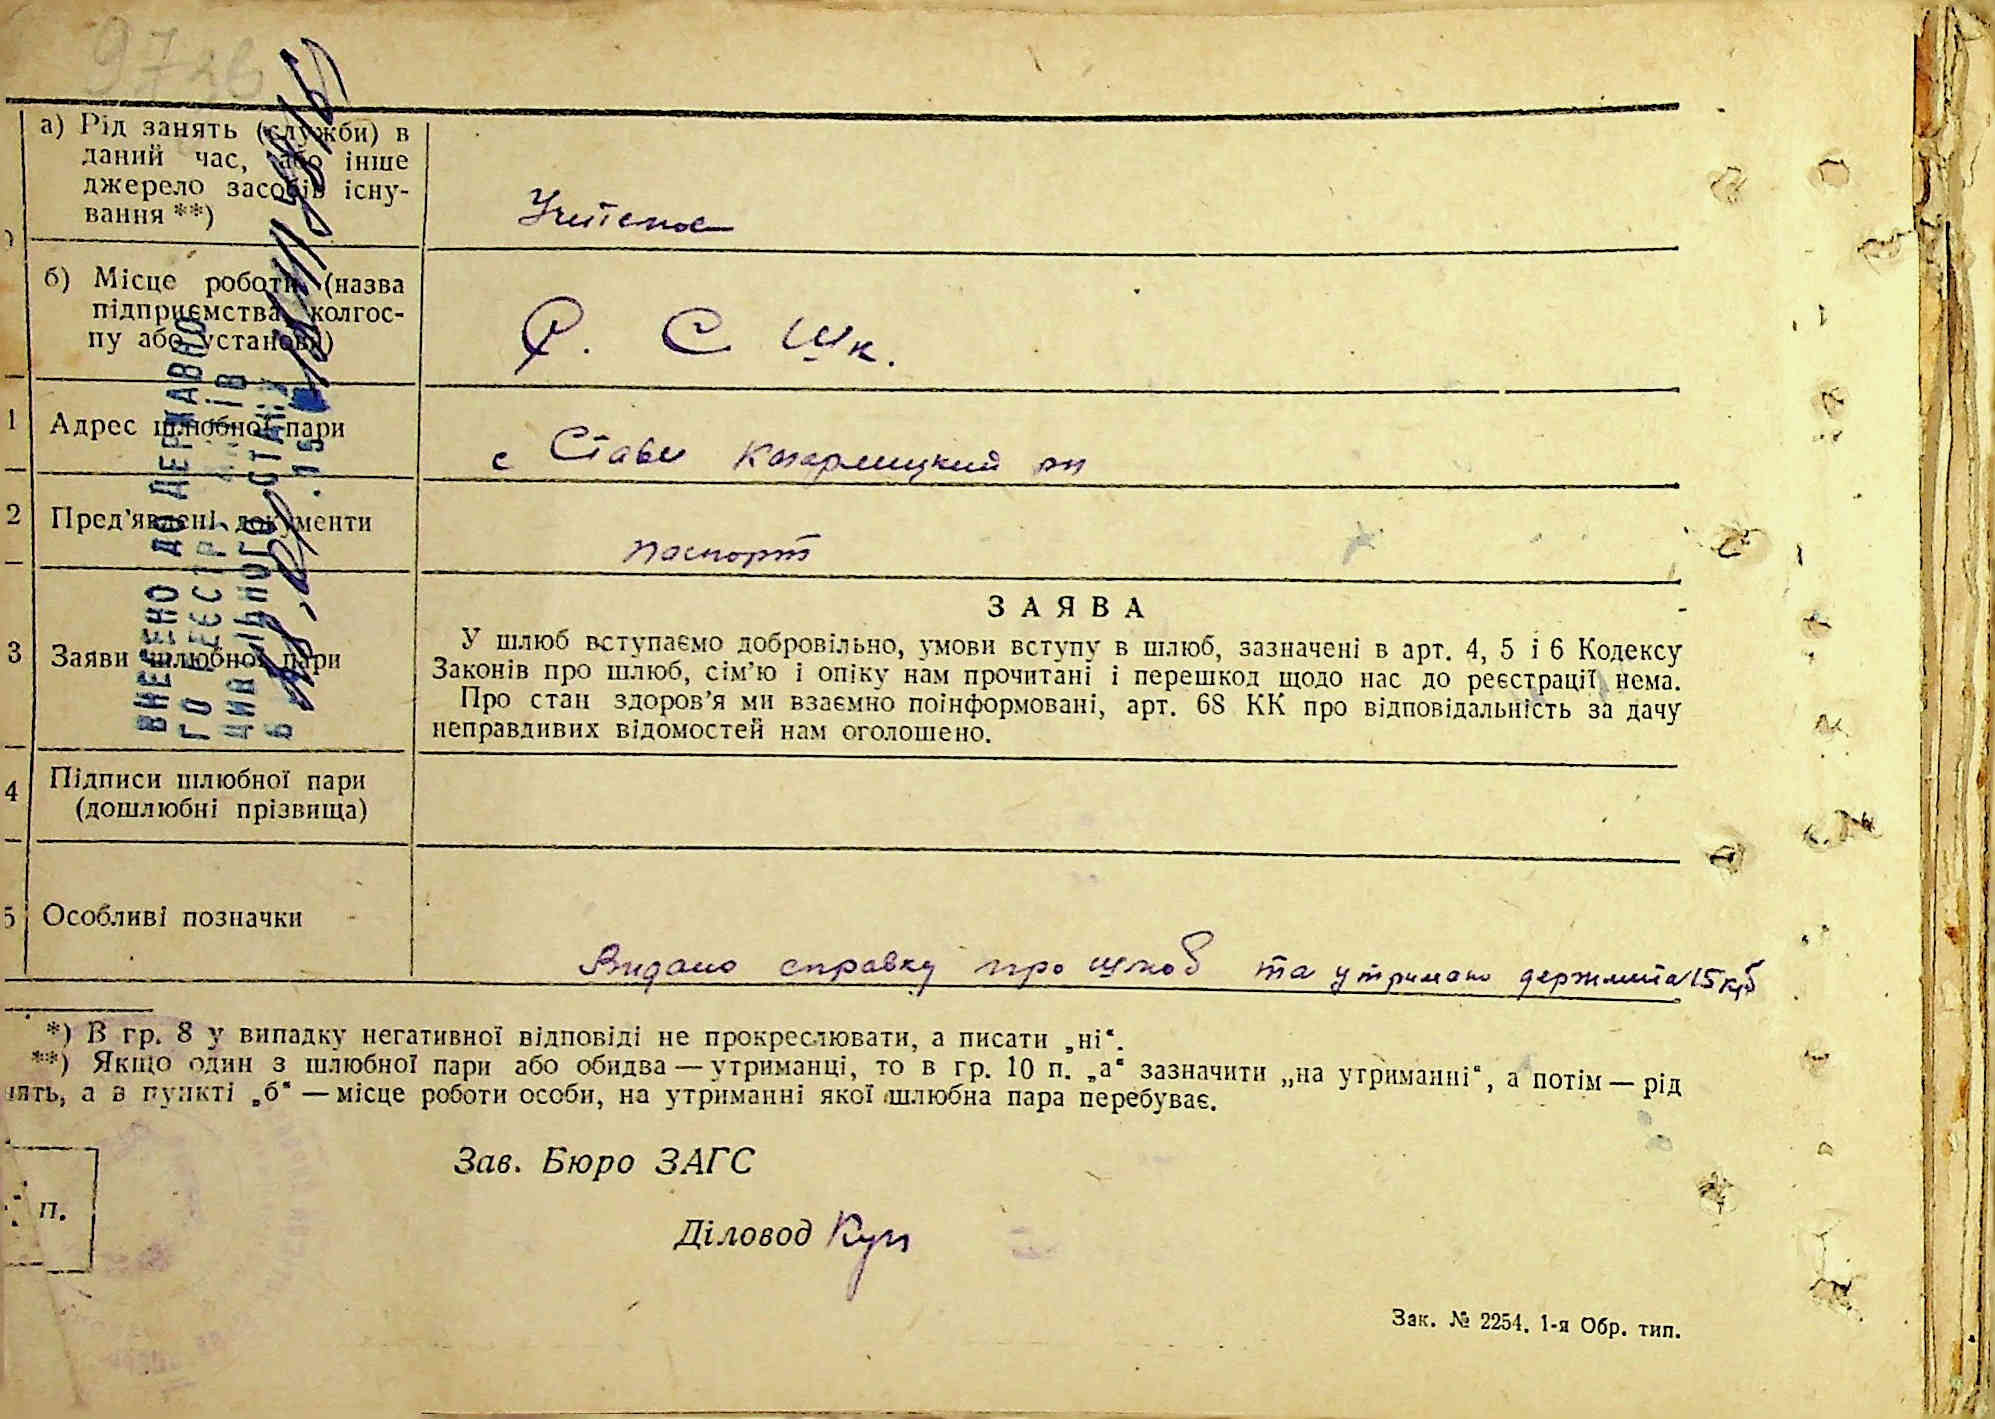 а) Рід занять (служби) в
даний час, або інше
джерело засобів існу-
вання **)
Учителює
б) Місце роботи (назва
підприємства, колгос-
пу або установи)
Р. С Шк.
1 Адрес шлюбної пари
с Стави Кагарлицкий рн
2 Пред’явлені документи
паспорт
3 Заяви шлюбної пари
ЗАЯВА
У шлюб вступаємо добровільно, умови вступу в шлюб, зазначені в арт. 4, 5 і 6 Кодексу
Законів про шлюб, сім’ю і опіку нам прочитані і перешкод щодо нас до реєстрації нема.
Про стан здоров’я ми взаємно поінформовані, арт. 68 КК про відповідальність за дачу
неправдивих відомостей нам оголошено.
4 Підписи шлюбної пари
(дошлюбні прізвища)
5 Особливі позначки
Видано справку про шлюб та утримано держмита 15 крб
*) В гр. 8 у випадку негативної відповіді не прокреслювати, а писати „ні“.
**) Якщо один з шлюбної пари або обидва — утриманці, то в гр. 10 п. „а“ зазначити „на утриманні“, а потім — рід
нять, а в пункті „б“ — місце роботи особи, на утриманні якої шлюбна пара перебуває.
п.
Зав. Бюро ЗАГС
Діловод
Зак. № 2254. 1-я Обр. тип.
ВНЕСЕНО ДО ДЕРЖАВНО
ГО РЕЄСТР
ЦИВІЛЬНОГО СТАНУ